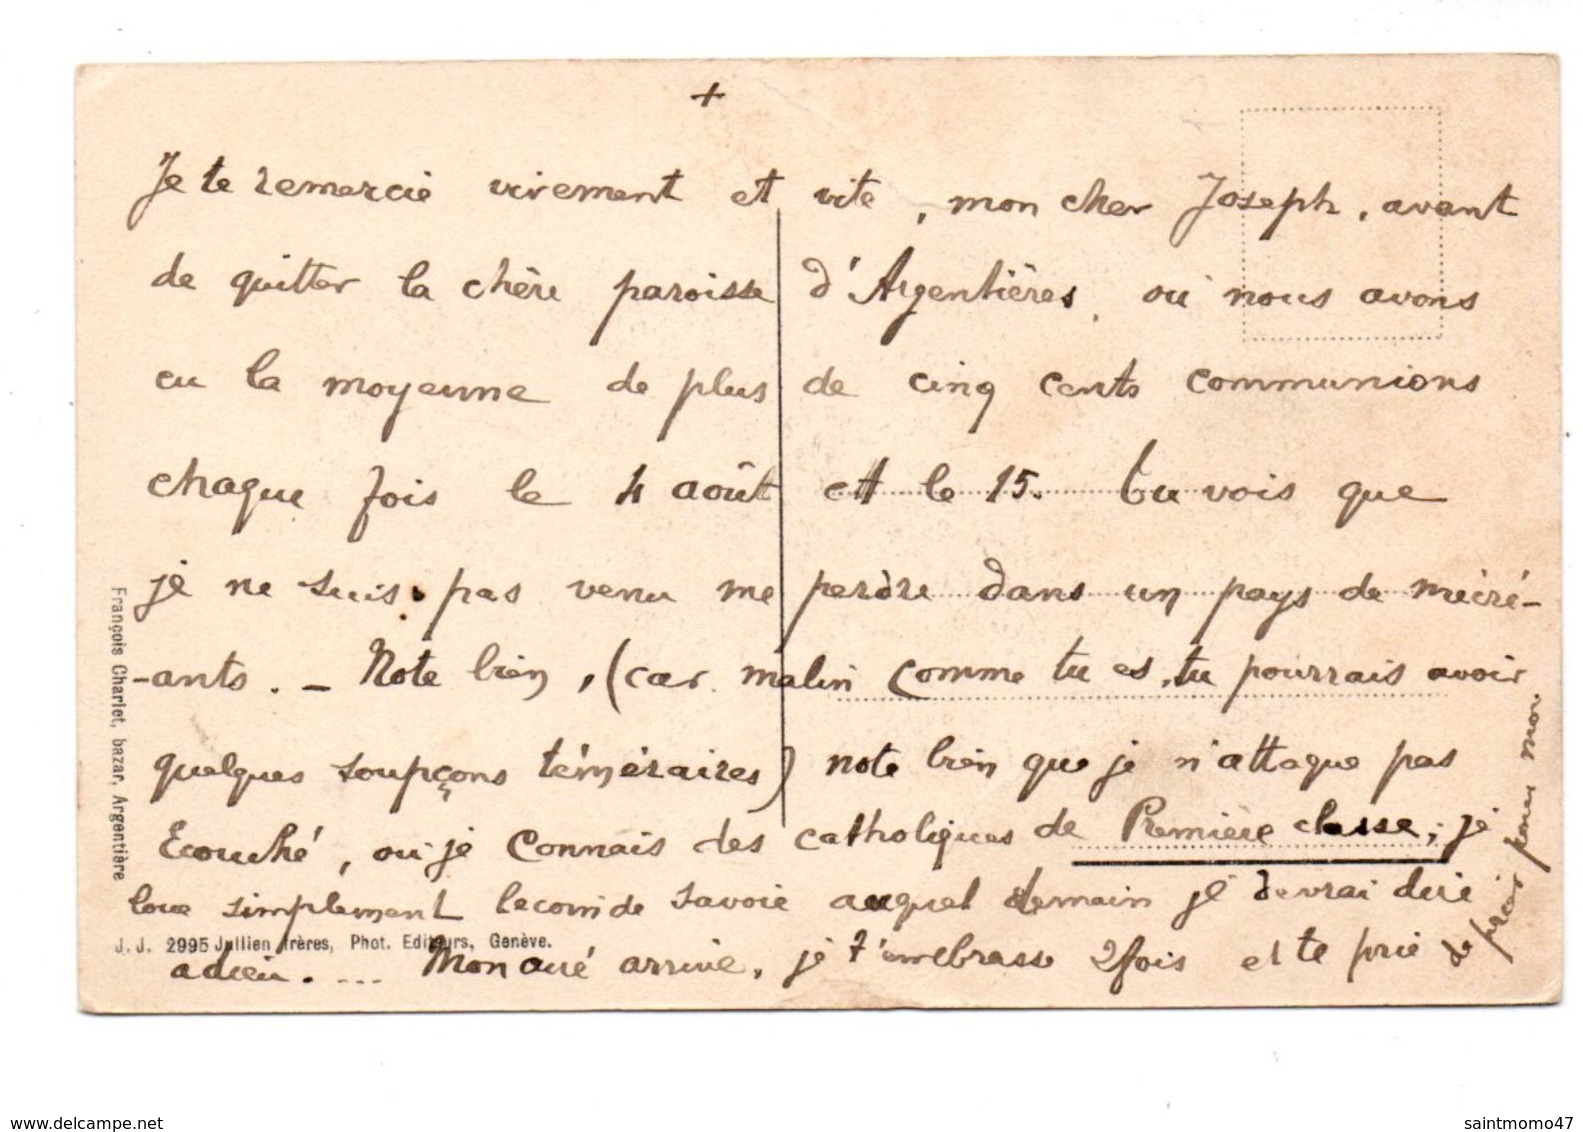 +
Je te remercie vivement et vite, mon cher Joseph, avant
de quitter la chère paroisse d'Argentières, où nous avons
eu la moyenne de plus de cinq cents communions
chaque fois le 4 août et le 15. Tu vois que
je ne suis pas venu me perdre dans un pays de mécré-
-ants. - Note bien, (car malin comme tu es, tu pourrais avoir
quelques soupçons téméraires) note bien que je n'attaque pas
Ecouché, où je connais des catholiques de Première classe; je
loue simplement le coin de Savoie auquel demain je devrai dire
adieu. ... Mon curé arrive, je t'embrasse 2 fois et te prie
de prier pour moi.
François Charlet, bazar, Argentière
J. J. 2995 Jullien frères, Phot. Editeurs, Genève.
www.delcampe.net
saintmomo47